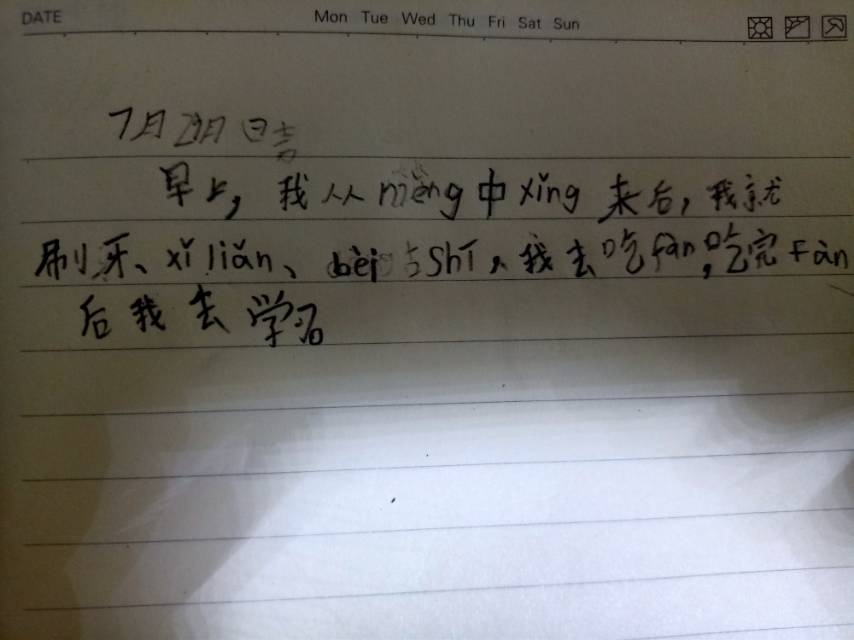 DATE Mon Tue Wed Thu Fri Sat Sun
7月29日 日
早上,我从mèng中xǐng来后,我就
刷牙、xǐ liǎn、bèi古Shī,我去吃fàn,吃完fàn
后我去学习